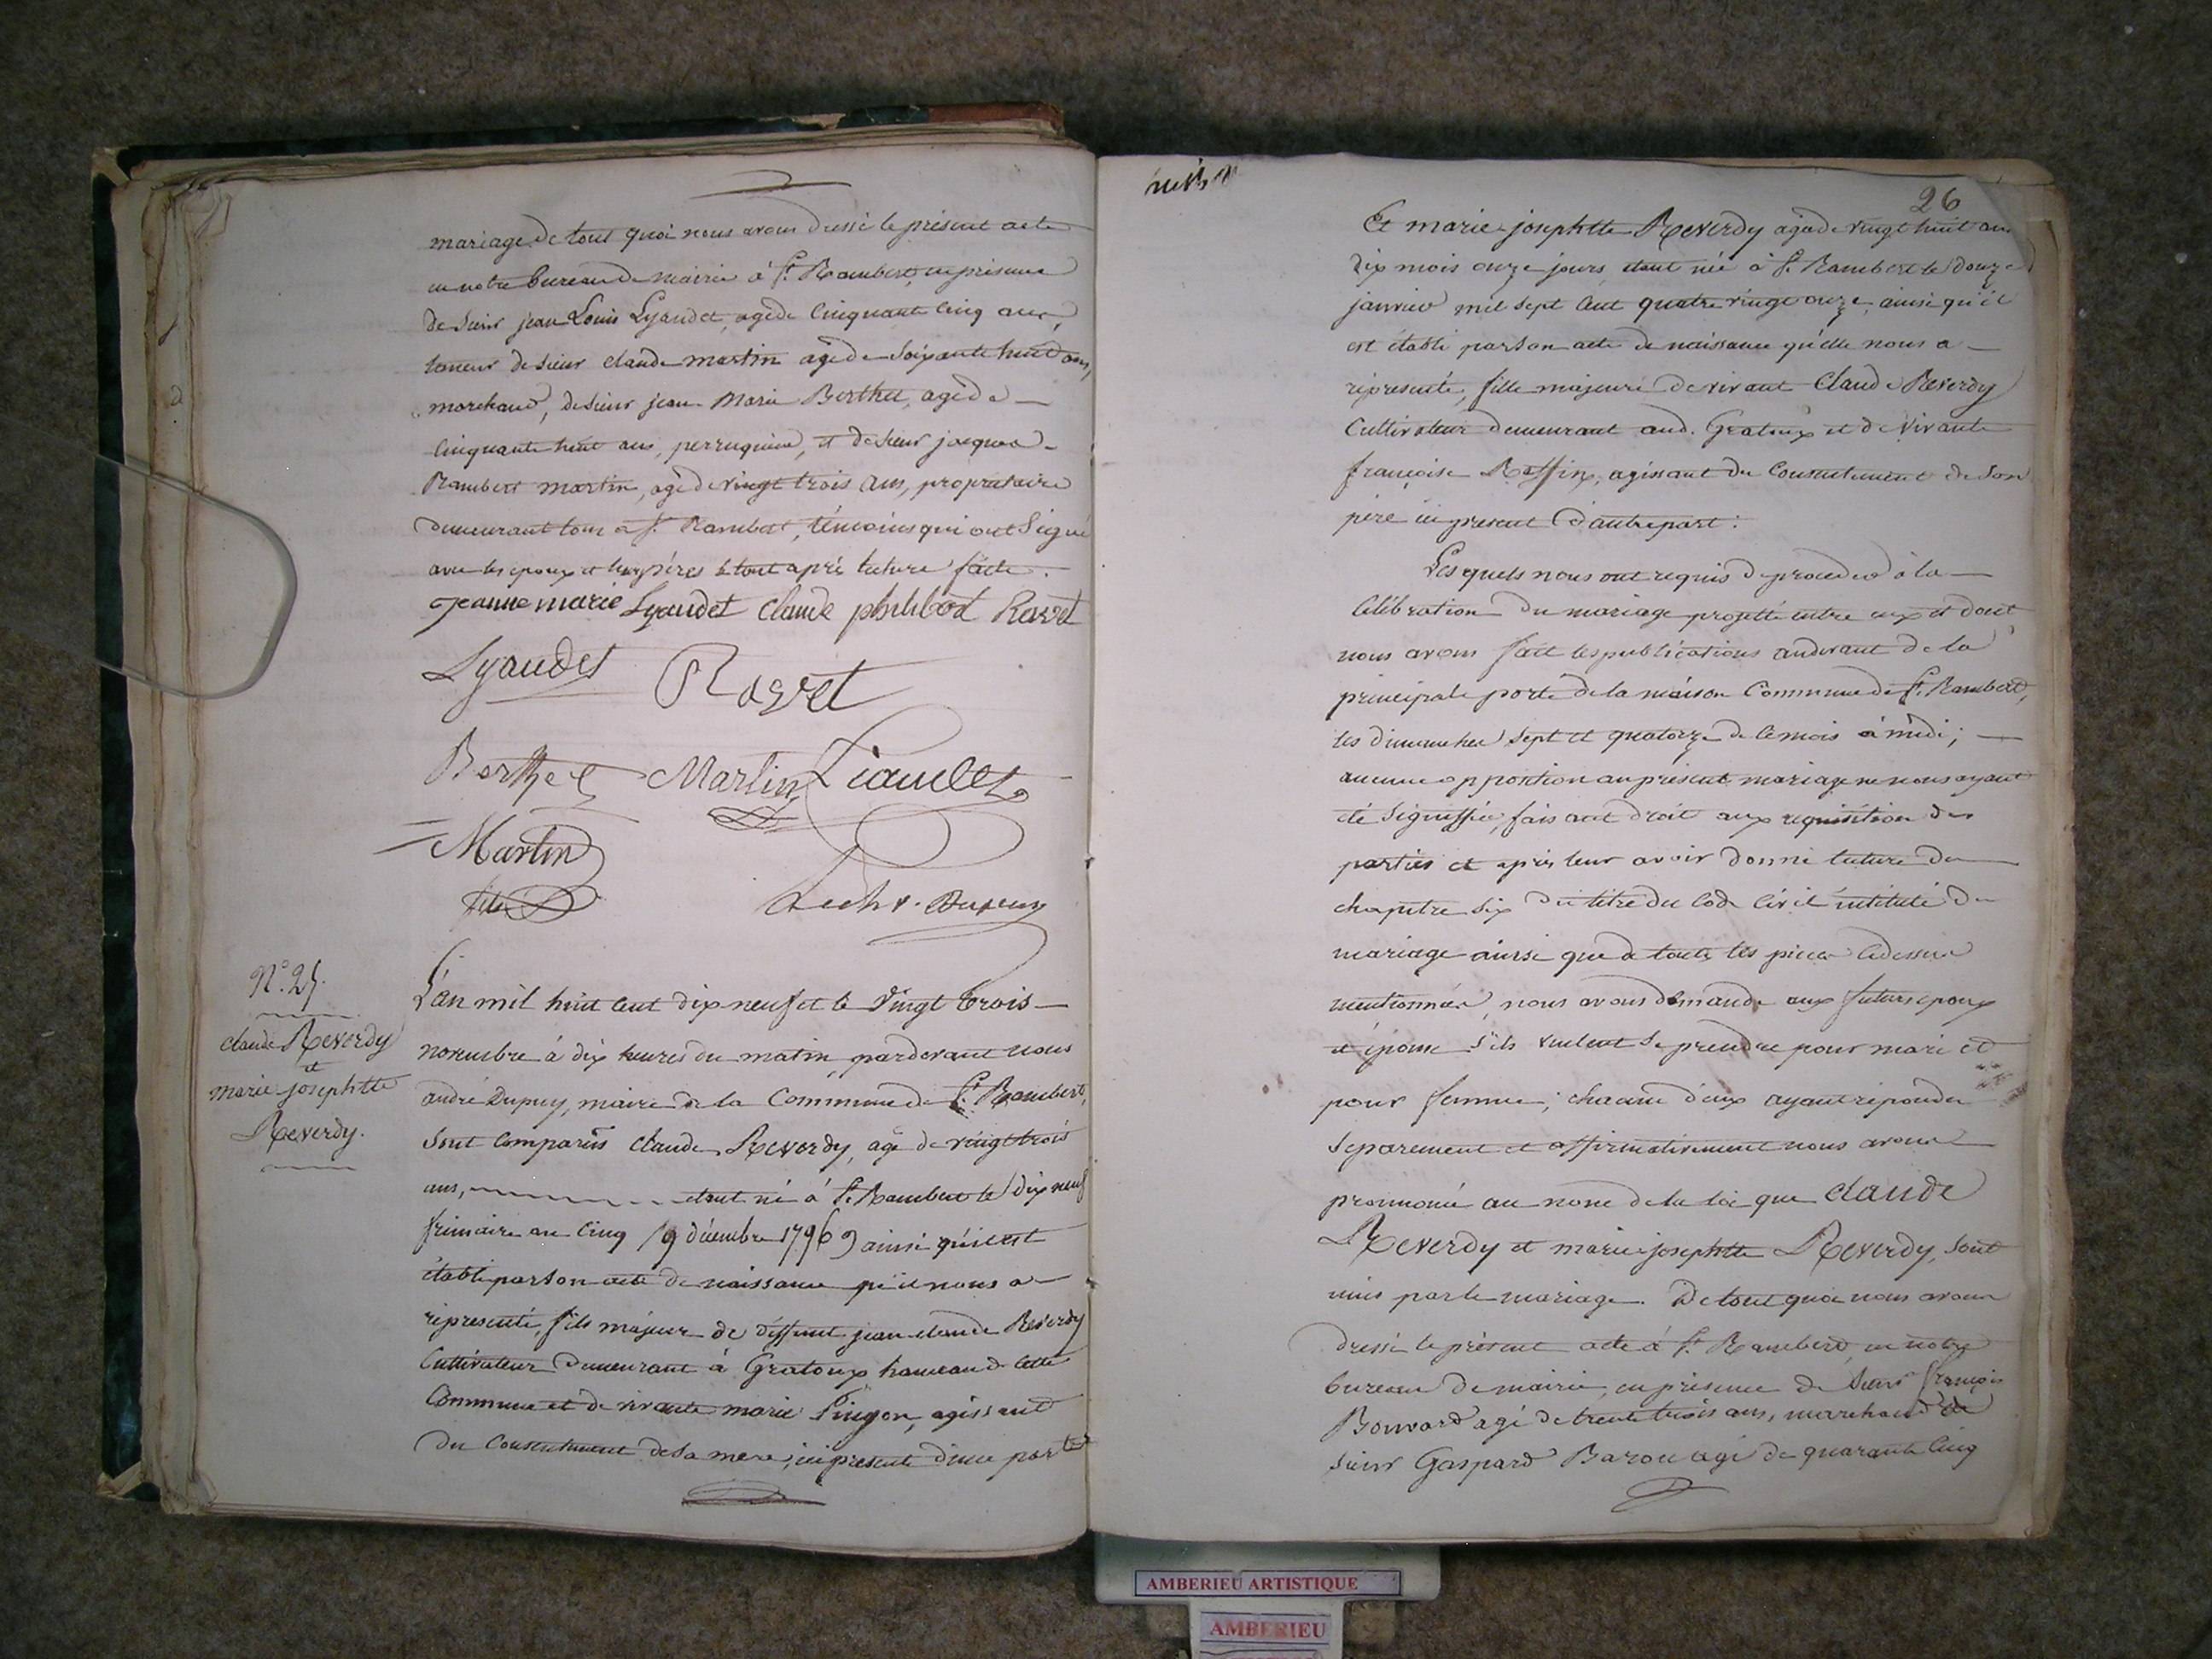 mariage de tout quoi nous avons dressé le présent acte
en notre bureau de mairie à St. Rambert, en présence
de Sieur jean Louis Lyaudet, agé de Cinquante Cinq ans,
tanneur de sieur claude martin agé de Soixante huit ans,
marchand, de sieur jean Marie Berthet, agé de
Cinquante huit ans, perruquier, et de sieur jacques
Rambert martin, agé de vingt trois ans, propriétaire
demeurant tous à St. Rambert, témoins qui ont Signé
avec les epoux et leurs pères le tout après lecture faite.
jeanne marie Lyaudet claude philibot Ravet
Lyaudet Ravet
Berthet Martin Liaudet
Martin
fils Dupuy
N°. 25.
claude Reverdy
et
marie josephtte
Reverdy.
L'an mil huit cent dix neuf et le vingt trois
novembre à dix heures du matin, pardevant nous
andré Dupuy, maire de la Commune de St. Rambert,
Sont Comparus claude Reverdy, agé de vingt trois
ans, étant né à St. Rambert le dix neuf
frimaire an Cinq (9 décembre 1796) ainsi qu'il est
établi par son acte de naissance qu'il nous a
représenté, fils majeur de deffunt jean claude Reverdy
Cultivateur demeurant à Gratoux hameau de cette
Commune et de vivante marie Pingon, agissant
du Consentement de sa mère, ici presente d'une part
26
Et marie josephtte Reverdy agée de vingt huit ans
dix mois onze jours, étant née à St. Rambert le douze
janvier mil sept cent quatre vingt onze, ainsi qu'il
est établi par son acte de naissance qu'elle nous a
représenté, fille majeure de vivant Claude Reverdy
Cultivateur demeurant aud. Gratoux et de vivante
françoise Ruffin, agissant du Consentement de son
père ici present d'autre part.
Lesquels nous ont requis de proceder à la
Célébration du mariage projetté entre eux et dont
nous avons fait les publications audevant de la
principale porte de la maison Commune de St. Rambert,
les dimanches sept et quatorze de ce mois à midi;
aucune opposition au présent mariage ne nous ayant
été Signiffiée, faisant droit aux requisition des
parties et après leur avoir donné lecture du
chapitre six du titre du Code Civil intitulé du
mariage ainsi que de toutes les pieces cidessus
mentionnées, nous avons demandé aux futurs epoux
et épouse s'ils veulent se prendre pour mari et
pour femme; chacun d'eux ayant répondu
Separement et affirmativement nous avons
prononcé au nom de la loi que Claude
Reverdy et marie josephtte Reverdy, sont
unis par le mariage. De tout quoi nous avons
dressé le présent acte à St. Rambert, en notre
bureau de mairie, en présence de Sieur françois
Bonvard agé de trente trois ans, marchand de
sieur Gaspard Barou agé de quarante Cinq
AMBERIEU ARTISTIQUE
AMBERIEU